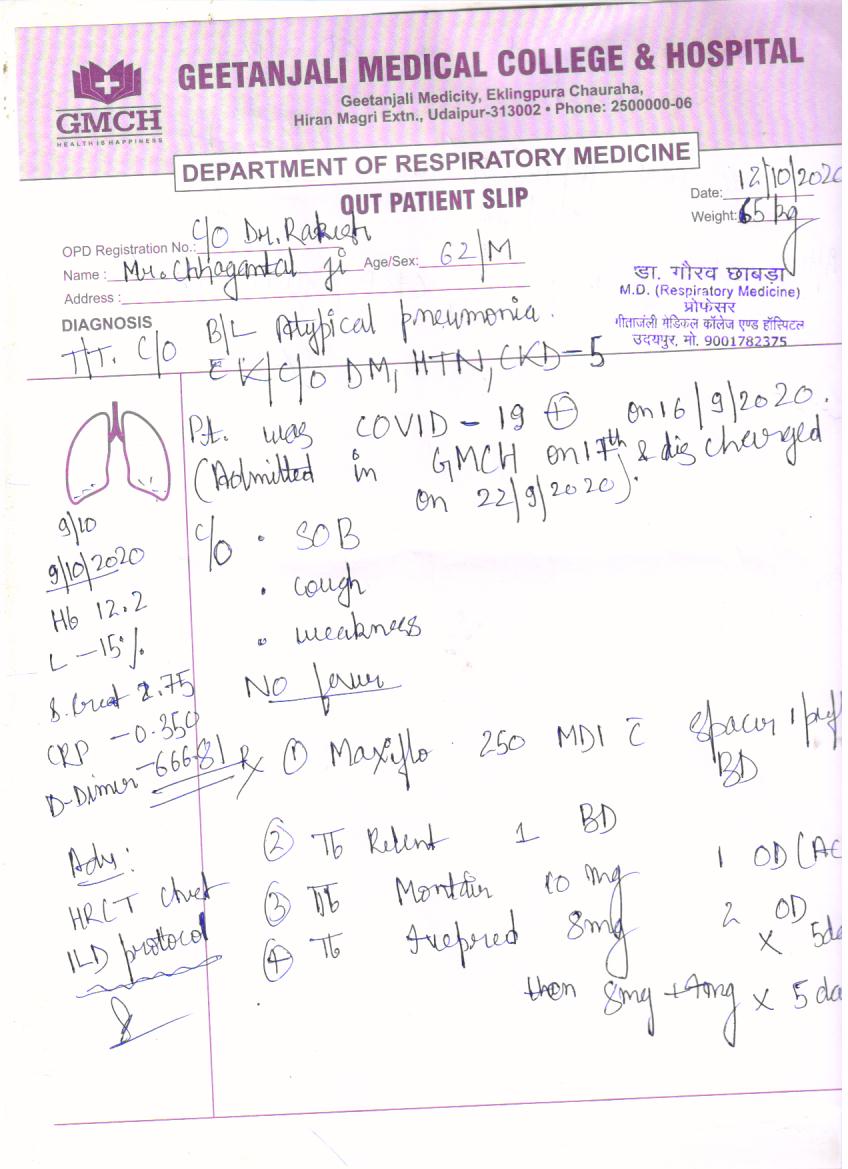 GEETANJALI MEDICAL COLLEGE & HOSPITAL
Geetanjali Medicity, Eklingpura Chauraha,
Hiran Magri Extn., Udaipur-313002 • Phone: 2500000-06
GMCH
HEALTH IS HAPPINESS
DEPARTMENT OF RESPIRATORY MEDICINE
OUT PATIENT SLIP
Date: 12/10/2020
Weight: 65 kg
OPD Registration No.: C/O Dr. Rakesh
Name : Mr. Chhaganlal ji Age/Sex: 62/M
Address :
डा. गौरव छाबडा
M.D. (Respiratory Medicine)
प्रोफेसर
गीताजंली मेडिकल कॉलेज एण्ड हॉस्पिटल
उदयपुर, मो. 9001782375
DIAGNOSIS B/L Atypical pneumonia.
T/T. C/O K/C/O DM, HTN, CKD-5
Pt. was COVID-19 + on 16/9/2020.
(Admitted in GMCH on 17th & discharged
on 22/9/2020).
C/O • SOB
• cough
• weakness
No fever
9/10
9/10/2020
Hb 12.2
L - 15%
S. Creat 2.75
CRP - 0.350
D-Dimer - 666.81
Adv:
HRCT Chest
ILD protocol
Rx ① Maxiflo 250 MDI c̄ spacer 1 puff
BD
② Tb 1 BD
③ Tb 10 mg 1 OD (AC
④ Tb 8mg 2 OD
x 5da
then 8mg + 4mg x 5 da